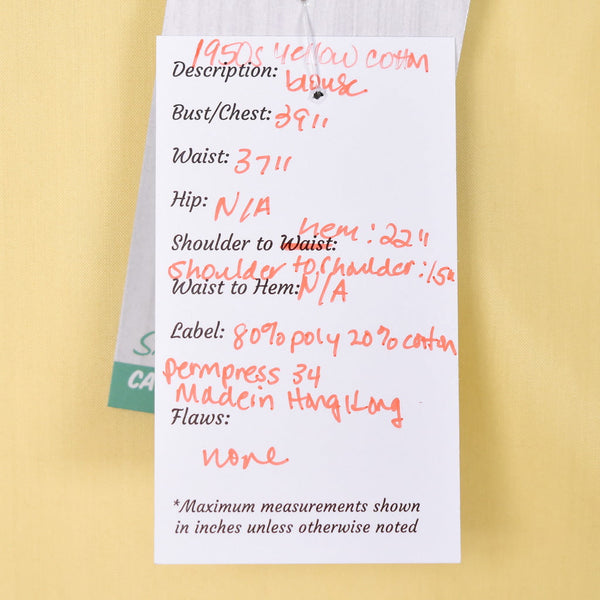 1950s yellow cotton
Description: blouse
Bust/Chest: 39"
Waist: 37"
Hip: N/A
hem: 22"
Shoulder to Waist:
shoulder to shoulder: 15"
Waist to Hem: N/A
Label: 80% poly 20% cotton
permpress 34
Made in Hong Kong
Flaws:
none
*Maximum measurements shown
in inches unless otherwise noted
CA